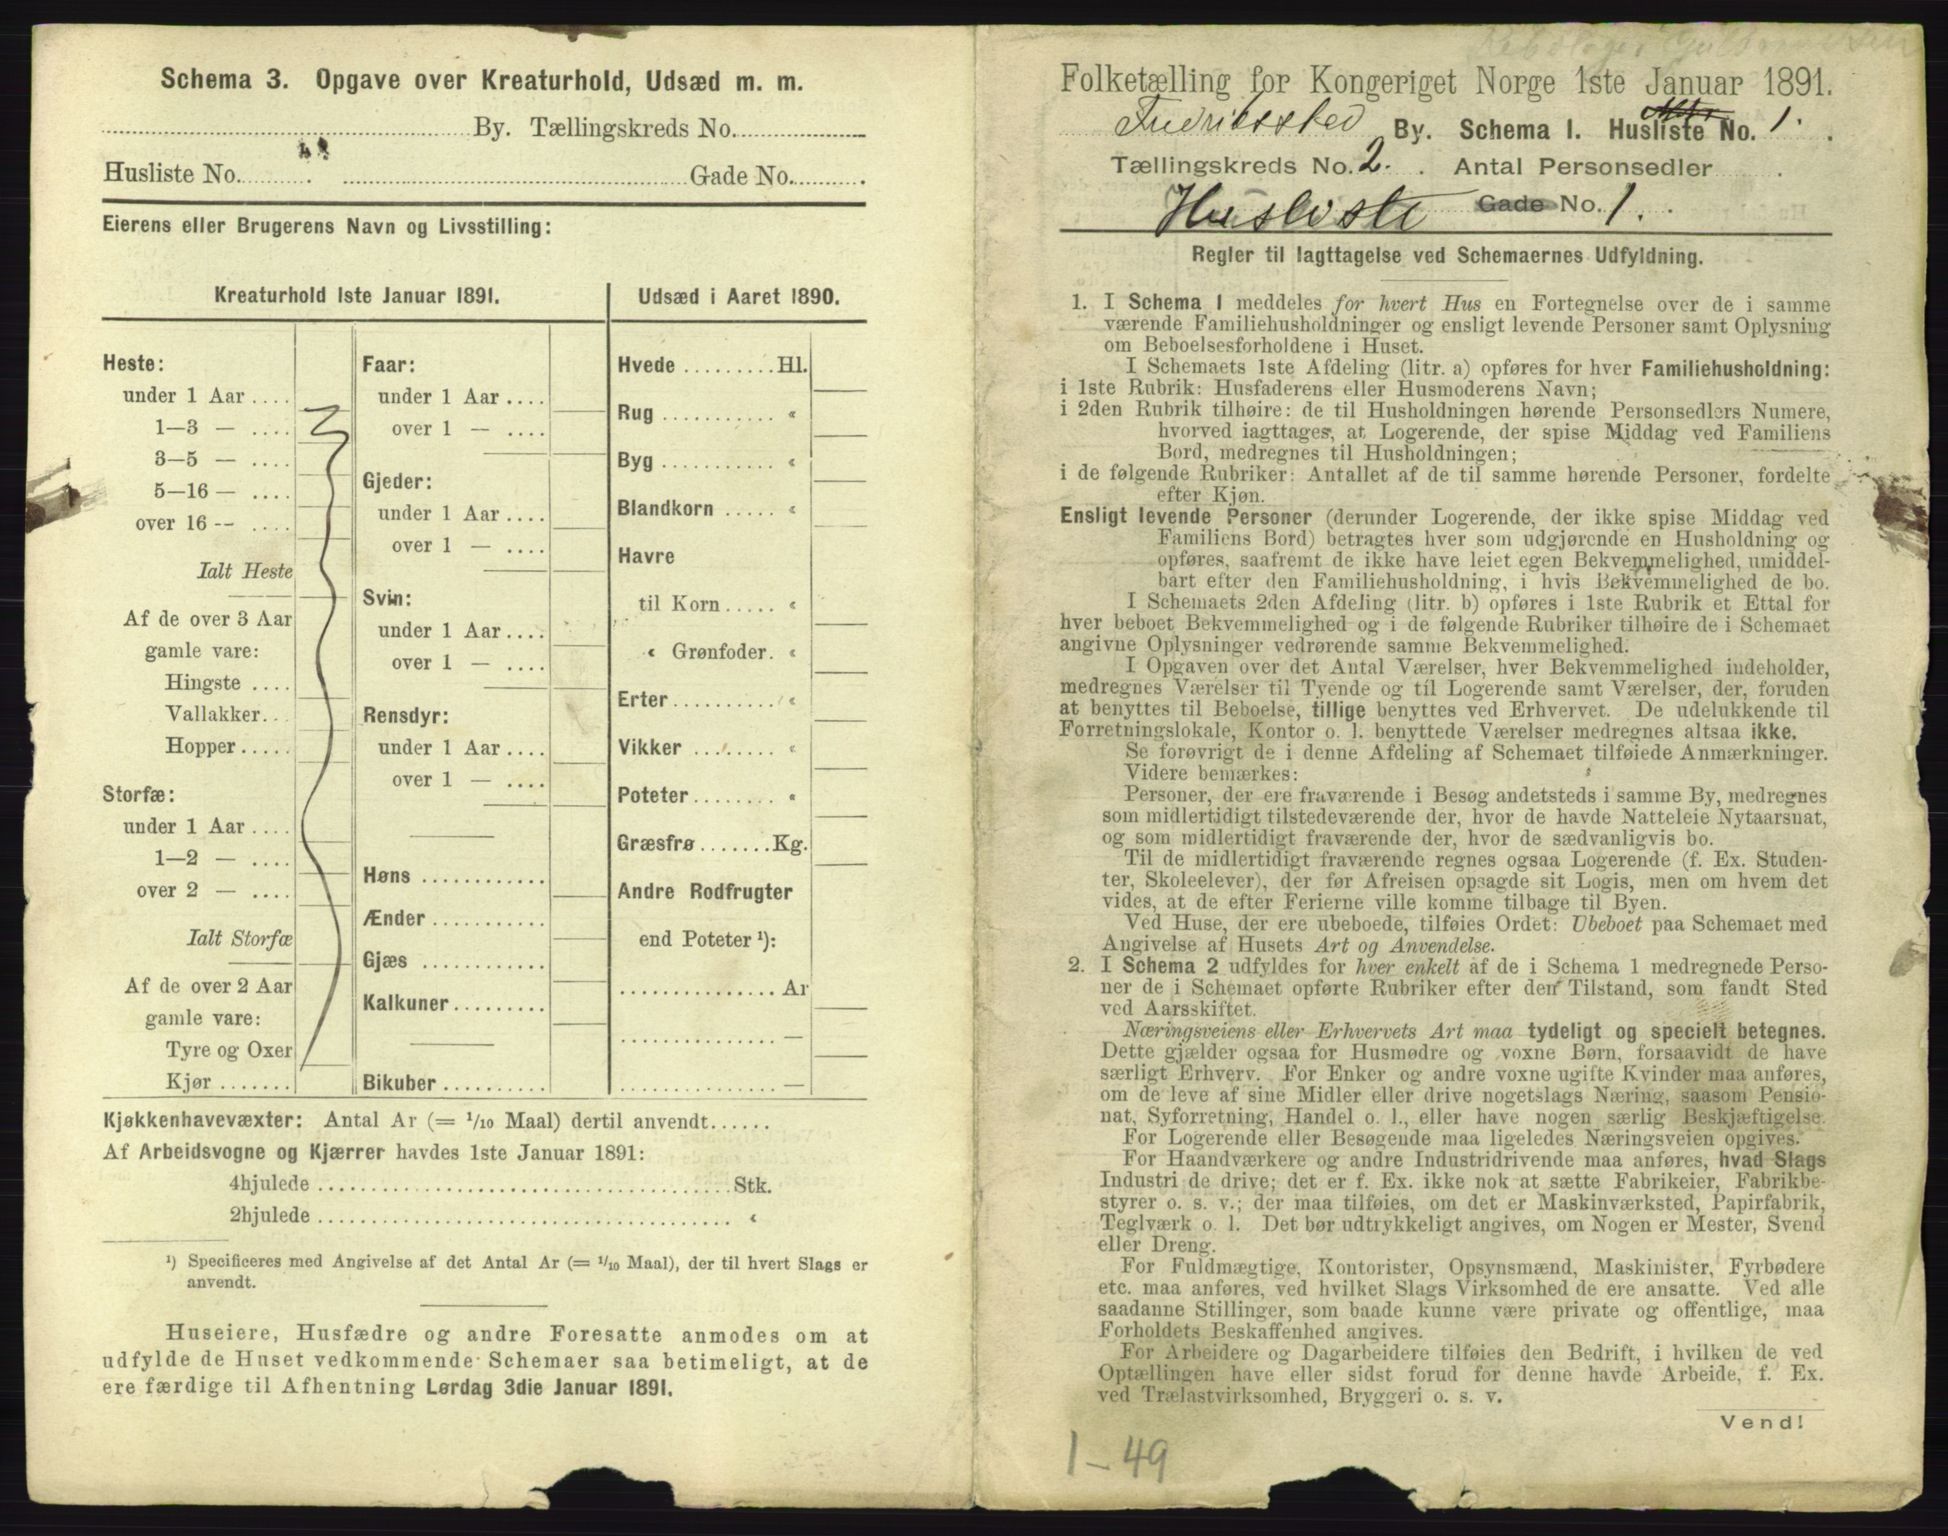 Schema 3. Opgave over Kreaturhold, Udsæd m. m.
By. Tællingskreds No.
Husliste No. Gade No.
Eierens eller Brugerens Navn og Livsstilling:
Kreaturhold 1ste Januar 1891.
Heste:
under 1 Aar
1—3 —
3—5 —
5—16 —
over 16 —
Ialt Heste
Af de over 3 Aar
gamle vare:
Hingste
Vallakker
Hopper
Storfæ:
under 1 Aar
1—2 —
over 2 —
Ialt Storfæ
Af de over 2 Aar
gamle vare:
Tyre og Oxer
Kjør
Faar:
under 1 Aar
over 1 —
Gjeder:
under 1 Aar
over 1 —
Svin:
under 1 Aar
over 1 —
Rensdyr:
under 1 Aar
over 1 —
Høns
Ænder
Gjæs
Kalkuner
Bikuber
Udsæd i Aaret 1890.
Hvede Hl.
Rug «
Byg «
Blandkorn «
Havre
til Korn «
« Grønfoder «
Erter «
Vikker «
Poteter «
Græsfrø Kg.
Andre Rodfrugter
end Poteter ¹):
Ar
—
—
Kjøkkenhavevæxter: Antal Ar (= 1/10 Maal) dertil anvendt
Af Arbeidsvogne og Kjærrer havdes 1ste Januar 1891:
4hjulede Stk.
2hjulede «
¹) Specificeres med Angivelse af det Antal Ar (= 1/10 Maal), der til hvert Slags er
anvendt.
Huseiere, Husfædre og andre Foresatte anmodes om at
udfylde de Huset vedkommende Schemaer saa betimeligt, at de
ere færdige til Afhentning Lørdag 3die Januar 1891.
Folketælling for Kongeriget Norge 1ste Januar 1891.
Fredriksstad By. Schema 1. Husliste No. 1.
Tællingskreds No. 2. Antal Personsedler
Husliste Gade No. 1.
Regler til Iagttagelse ved Schemaernes Udfyldning.
1. I Schema 1 meddeles for hvert Hus en Fortegnelse over de i samme
værende Familiehusholdninger og ensligt levende Personer samt Oplysning
om Beboelsesforholdene i Huset.
I Schemaets 1ste Afdeling (litr. a) opføres for hver Familiehusholdning:
i 1ste Rubrik: Husfaderens eller Husmoderens Navn;
i 2den Rubrik tilhøire: de til Husholdningen hørende Personsedlers Numere,
hvorved iagttages, at Logerende, der spise Middag ved Familiens
Bord, medregnes til Husholdningen;
i de følgende Rubriker: Antallet af de til samme hørende Personer, fordelte
efter Kjøn.
Ensligt levende Personer (derunder Logerende, der ikke spise Middag ved
Familiens Bord) betragtes hver som udgjørende en Husholdning og
opføres, saafremt de ikke have leiet egen Bekvemmelighed, umiddel-
bart efter den Familiehusholdning, i hvis Bekvemmelighed de bo.
I Schemaets 2den Afdeling (litr. b) opføres i 1ste Rubrik et Ettal for
hver beboet Bekvemmelighed og i de følgende Rubriker tilhøire de i Schemaet
angivne Oplysninger vedrørende samme Bekvemmelighed.
I Opgaven over det Antal Værelser, hver Bekvemmelighed indeholder,
medregnes Værelser til Tyende og til Logerende samt Værelser, der, foruden
at benyttes til Beboelse, tillige benyttes ved Erhvervet. De udelukkende til
Forretningslokale, Kontor o. l. benyttede Værelser medregnes altsaa ikke.
Se forøvrigt de i denne Afdeling af Schemaet tilføiede Anmærkninger.
Videre bemærkes:
Personer, der ere fraværende i Besøg andetsteds i samme By, medregnes
som midlertidigt tilstedeværende der, hvor de havde Natteleie Nytaarsnat,
og som midlertidigt fraværende der, hvor de sædvanligvis bo.
Til de midlertidigt fraværende regnes ogsaa Logerende (f. Ex. Studen-
ter, Skoleelever), der før Afreisen opsagde sit Logis, men om hvem det
vides, at de efter Ferierne ville komme tilbage til Byen.
Ved Huse, der ere ubeboede, tilføies Ordet: Ubeboet paa Schemaet med
Angivelse af Husets Art og Anvendelse.
2. I Schema 2 udfyldes for hver enkelt af de i Schema 1 medregnede Perso-
ner de i Schemaet opførte Rubriker efter den Tilstand, som fandt Sted
ved Aarsskiftet.
Næringsveiens eller Erhvervets Art maa tydeligt og specielt betegnes.
Dette gjælder ogsaa for Husmødre og voxne Børn, forsaavidt de have
særligt Erhverv. For Enker og andre voxne ugifte Kvinder maa anføres,
om de leve af sine Midler eller drive nogetslags Næring, saasom Pensio-
nat, Syforretning, Handel o. l., eller have nogen særlig Beskjæftigelse.
For Logerende eller Besøgende maa ligeledes Næringsveien opgives.
For Haandværkere og andre Industridrivende maa anføres, hvad Slags
Industri de drive; det er f. Ex. ikke nok at sætte Fabrikeier, Fabrikbe-
styrer o. s. v.; der maa tilføies, om det er Maskinværksted, Papirfabrik,
Teglværk o. l. Det bør udtrykkeligt angives, om Nogen er Mester, Svend
eller Dreng.
For Fuldmægtige, Kontorister, Opsynsmænd, Maskinister, Fyrbødere
etc. maa anføres, ved hvilket Slags Virksomhed de ere ansatte. Ved alle
saadanne Stillinger, som baade kunne være private og offentlige, maa
Forholdets Beskaffenhed angives.
For Arbeidere og Dagarbeidere tilføies den Bedrift, i hvilken de ved
Optællingen have eller sidst forud for denne havde Arbeide, f. Ex.
ved Trælastvirksomhed, Bryggeri o. s. v.
Vend!
1-49